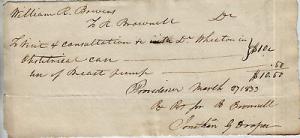 William R. Bowens
To R Brownell Dr
To Visit & consultation & with Dr. Wheeton in
Obstetrical case $10.00
use of Breast pump .50
$10.50
Providence March 1833
Rec for R Brownell
Jonathan G Draper